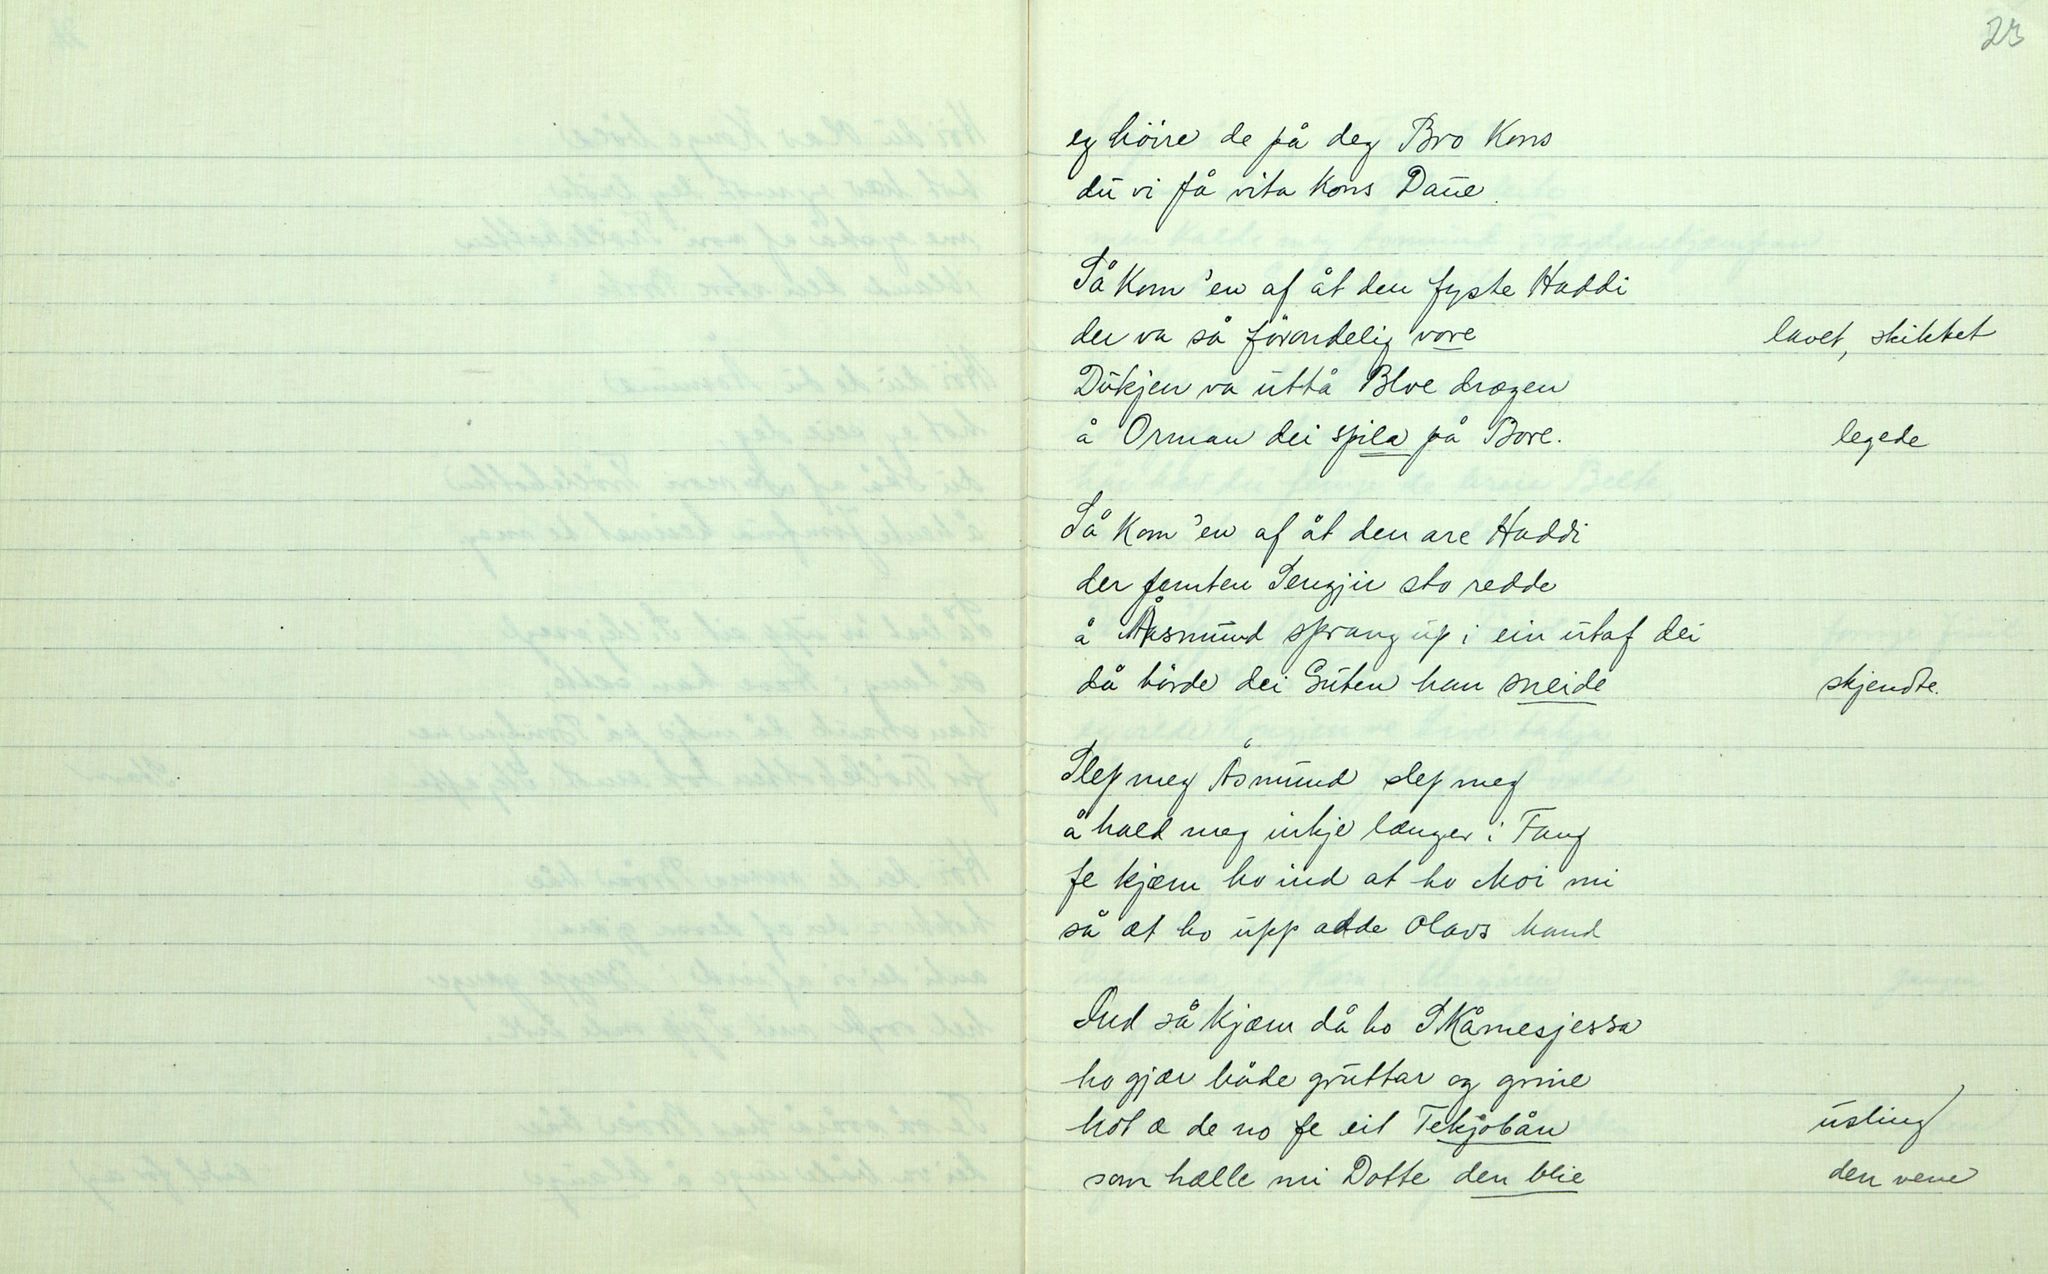 23
eg höire de på deg Bro Kons
du vi få vita Kons Daue
Så Kom 'en af åt den fyste Haddi
der va så förondelig vore lavet, skikket
Dukjen va uttå Bloe drogen
å Orman dei spila på Bore. legede
Så Kom 'en af åt den are Haddi
der femten Sengjir sto redde
å Åasmund sprang up i ein utaf dei
då hörde dei Guten han sneide skjendte.
Slep meg Åsmund slep meg
å hald meg inkje længer i Fang
fe kjæm ho ind at ho Moi mi
så æt ho upp adde Olavs Mand
Ind så kjæm då ho SKåmesjessa
ho gjær både gruttar og grine
hot æ de no fe eit Tekjöbån usling
som hælle mi Dotte den blie den vene